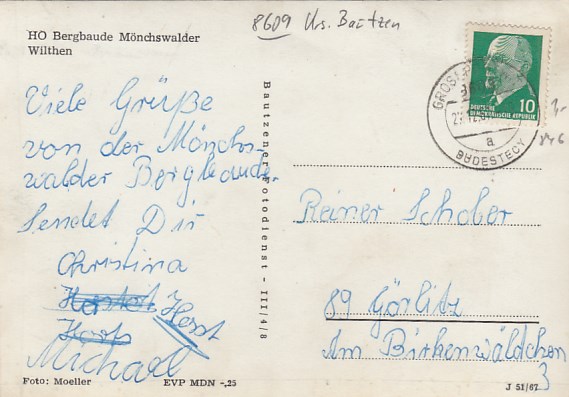 8609 Krs. Bautzen
HO Bergbaude Mönchswalder
Wilthen
Viele Grüße
von der Mönchs-
walder Bergbaude.
Sendet Dir
Christina
Horst
Michael
Foto: Moeller
EVP MDN -,25
Bautzener Fotodienst - III/4/8
10
DEUTSCHE
DEMOKRATISCHE REPUBLIK
a
BUDESTECY
Reiner Schober
89 Görlitz
Am Birkenwäldchen
3
J 51/67